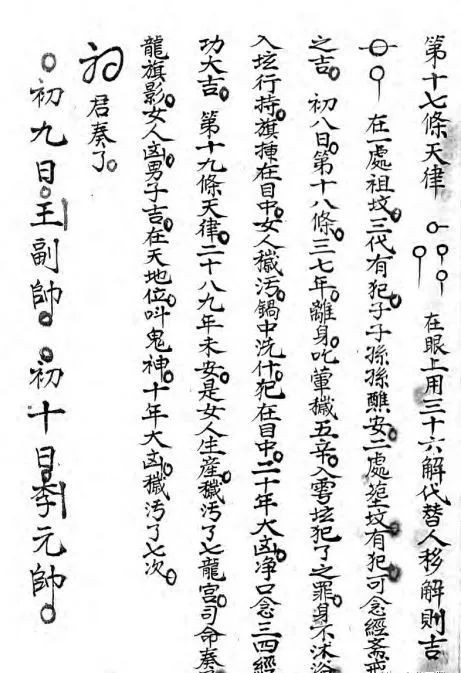 第十七條天律 在眼上用三十六解代替人移解則吉
在一處祖坟三代有犯子子孫孫醮安二處茔坟有犯可念經斋戒
之吉 初八日第十八條三七年離身吃葷穢五辛入雩坛犯了之罪身不沐浴
入坛行持旗揀在目中女人穢污鍋中洗什犯在目中二十年大凶净口念三四經
功大吉 第十九條天律二十八九年未安是女人生産穢污了七龍宫司命奏
龍旗影女人凶男子吉在天地位呌鬼神十年大凶穢污了七次
初 君奏了
初九日王副帥 初十日李元帥